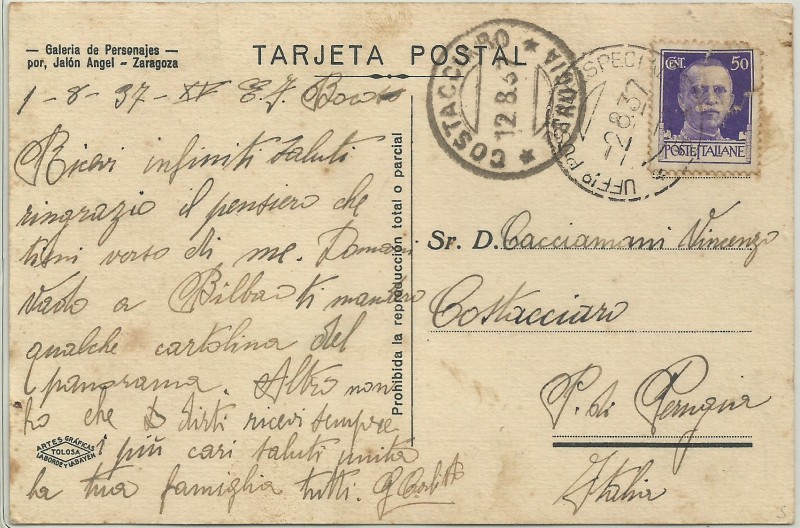 — Galeria de Personajes —
por, Jalón Angel - Zaragoza
TARJETA POSTAL
1 - 8 - 37 - XV
Ricevi infiniti saluti
ringrazio il pensiero che
tieni verso di me. Domani
vado a Bilbao ti manderò
qualche cartolina del
panorama. Altro non
ho che dirti ricevi sempre
i più cari saluti unita
la tua famiglia tutti.
ARTES GRÁFICAS
TOLOSA
LABORDE Y LABAYEN
Prohibida la reproducción total o parcial
COSTACCIARO
12.8.3
UFFIO POSTALE SPECIALE
2.8.37
CENT. 50
POSTE ITALIANE
Sr. D. Cacciamani Vincenzo
Costacciaro
P. di Perugia
Italia